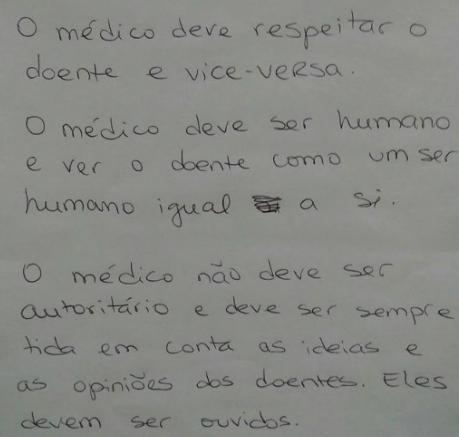 O médico deve respeitar o
doente e vice-versa.
O médico deve ser humano
e ver o doente como um ser
humano igual a si.
O médico não deve ser
autoritário e deve ser sempre
tida em conta as ideias e
as opiniões dos doentes. Eles
devem ser ouvidos.